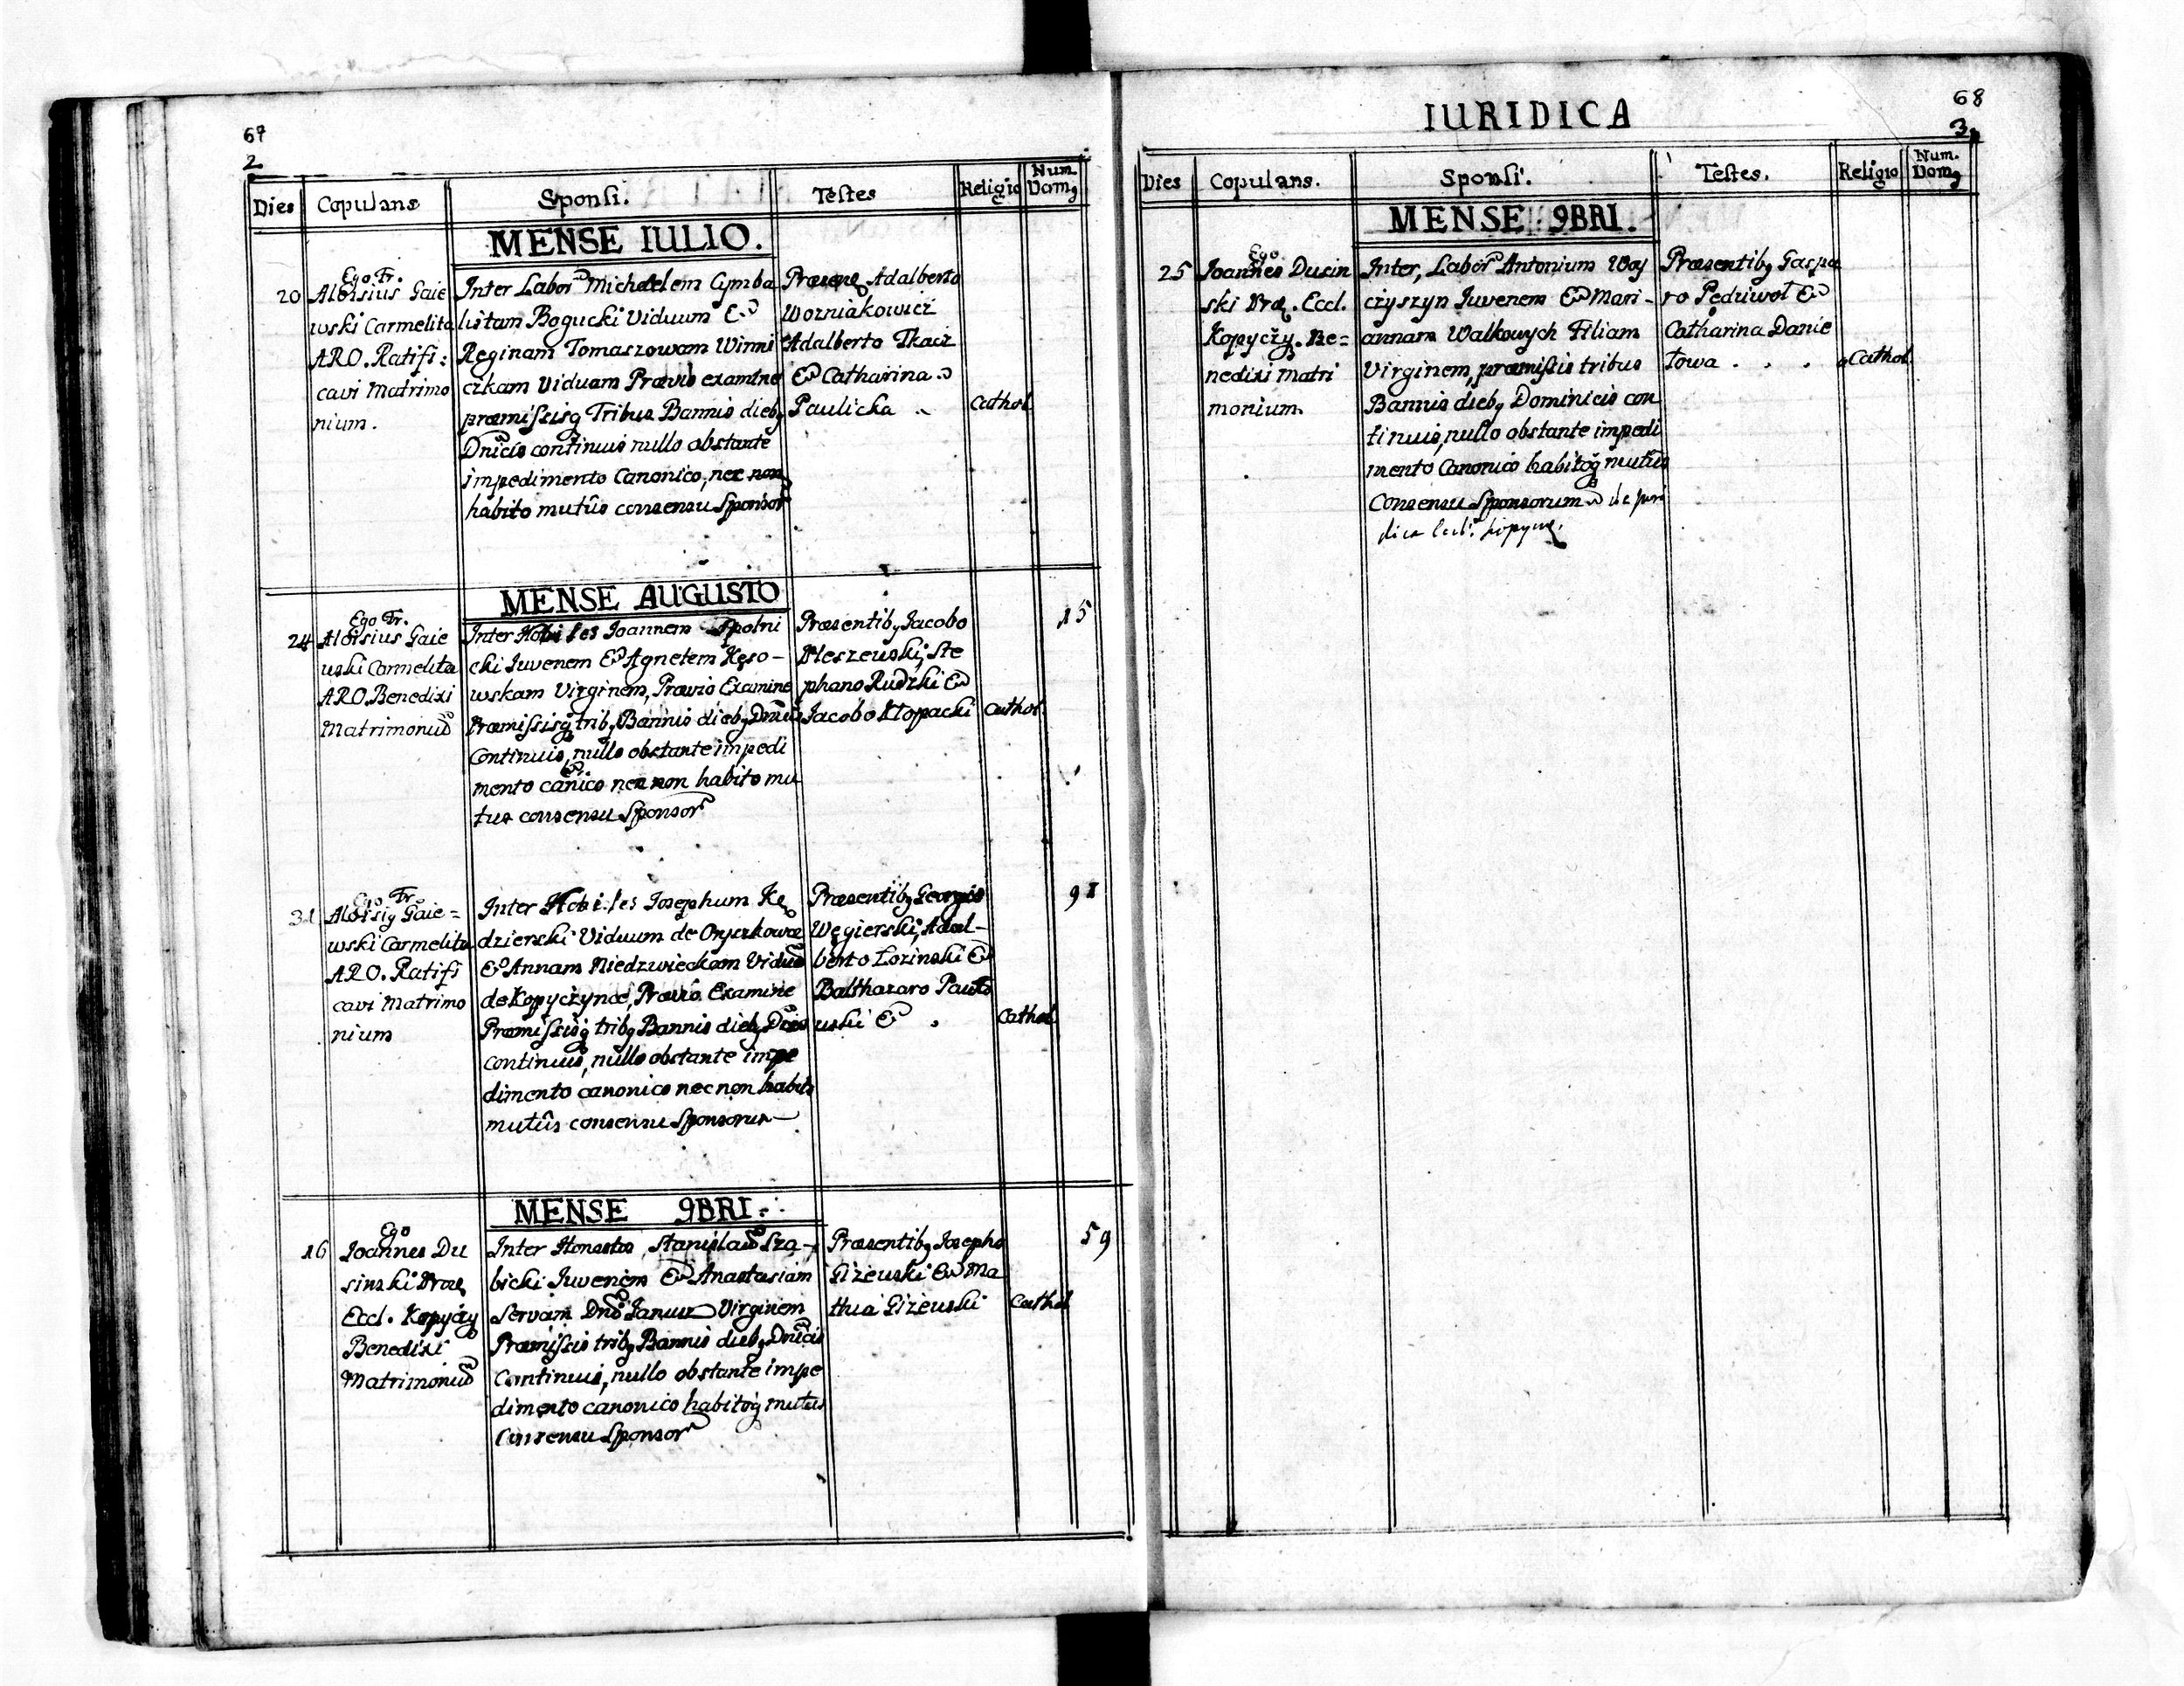 67
2
Dies Copulans Sponsi. Testes Religio Num. Dom9
MENSE IULIO.
20
Ego Fr.
Aloisius Gaie
wski Carmelita
ARO. Ratifi:
cavi Matrimo
nium.
Inter Labor Michaelem Cymba
listam Bogucki Viduum &
Reginam Tomaszowam Winni
czkam Viduam Prævio examine
præmissisq Tribus Bannis dieb9
Dnicis continuis nullo obstante
impedimento Canonico, nec non
habito mutûo consensu Sponsor
Adalberto
Wozniakowicz
Adalberto Tkacz
& Catharina
Paulicka
Cathol
MENSE AUGUSTO
24
Ego Fr.
Aloisius Gaie
wski Carmelita
ARO. Benedixi
Matrimoniũ
Inter Nobiles Ioannem Spolni
cki Iuvenem & Agnetem Kęso-
wskam Virginem, Prævio Examine
Præmissisq trib9 Bannis dieb9 Dnicis
Continuis, nullo obstante impedi
mento canico nec non habito mu
tuo consensu Sponsor
Præsentib9 Iacobo
Pleszewski, Ste
phano Rudzki &
Iacobo Kłopacki
Cathol.
15
31
Ego Fr.
Aloisi9 Gaie=
wski Carmelita
ARO. Ratifi
cavi Matrimo
nium
Inter Nobiles Iosephum Kę
dzierski Viduum de
& Annam Niedzwieckam Viduã
de Kopyczynce, Prævio Examine
Præmissisq trib9 Bannis dieb9
continuis, nullo obstante impe
dimento canonico nec non habito
mutûo consensu Sponsorum
Præsentib9 Georgio
Węgierski, Adal-
berto Łozinski &
Balthazaro Pawło
wski &
Cathol
91
MENSE 9BRI.
16
Ego
Ioannes Du
sinski
Eccl. Kopyczy
Benedixi
Matrimoniũ
Inter Honestos Stanislaũ Szą-
bicki Iuvenem & Anastasiam
Servam Virginem
Præmissis trib9 Bannis dieb9 Dnicis
Continuis, nullo obstante impe
dimento canonico habitoq mutuo
Consensu Sponsor
Præsentib9 Iosepho
Giżewski & Ma
thia Giżewski
Cathol
59
IURIDICA
68
3
Dies Copulans. Sponsi. Testes. Religio Num. Dom9
MENSE 9BRI.
25
Ego
Ioannes Dusin
ski Eccl.
Kopyczy. Be=
nedixi Matri
monium.
Inter, Labor Antonium Woy
czyszyn Iuvenem & Mari-
annam Walkowych Filiam
Virginem, præmissis tribus
Bannis dieb9 Dominicis con
tinuis, nullo obstante impedi
mento Canonico habitoq mutuo
Consensu Sponsorum
Præsentib9 Gaspa
ro Pedziwol &
Catharina Danie
lowa . . .
Cathol.